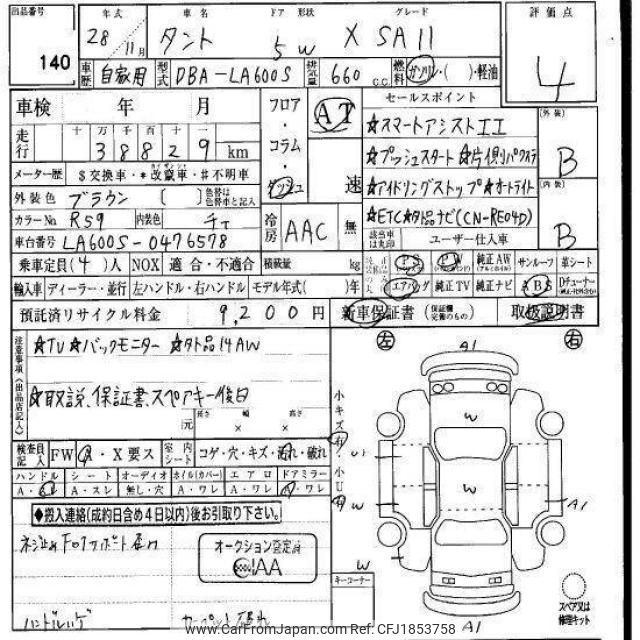 出品番号 年式 車名 ドア 形状 グレード 評価点
140 28年 11月 タント 5W X SAII 4
車歴 自家用 型式 DBA-LA600S 排気量 660 c.c. 燃料 ガソリン・( )・軽油
車検 年 月 フロア・コラム・ダッシュ AT 速 セールスポイント
走行 十万千百十 38829 km ☆スマートアシストII (外装) B
☆プッシュスタート☆片側パワスラ
メーター歴 $交換車・*改竄車・#不明車 ☆アイドリングストップ☆オートライト (内装) B
外装色 ブラウン [ ] 色替は色替車と記入
カラーNo R59 内装色 チャ 冷房 AAC 無 ☆ETC☆外品ナビ(CN-RE04D)
車台番号 LA600S-0476578 該当車は丸印 ユーザー仕入車
乗車定員(4)人 NOX 適合・不適合 積載量 kg PS PW 純正AW サンルーフ 革シート
輸入車 ディーラー・並行 左ハンドル・右ハンドル モデル年式( )年 エアバッグ 純正TV 純正ナビ ABS Dチューナー
預託済リサイクル料金 9,200円 新車保証書 (保証欄完備のもの) 取扱説明書
注意事項(出品店記入) ☆TV☆バックモニター☆外品14AW
☆取説、保証書、スペアキー後日
元 長さ × 幅 × 高さ
検査員記入 FW A・X要ス 室内シート コゲ・穴・キズ・濡れ・破れ
ハンドル シート オーディオ ホイル(カバー) エアロ ドアミラー
A・スレ A・スレ 無し・穴 A・ワレ A・ワレ A・ワレ
◆搬入連絡(成約日含め4日以内)後お引取り下さい。
オークション査定済
JAAA
左 右
A1
小キズ有 小U有
W
U1
W
W
W
A1
W
キーコーナー
スペア又は修理キット
A1
www.CarFromJapan.com Ref: CFJ1853758